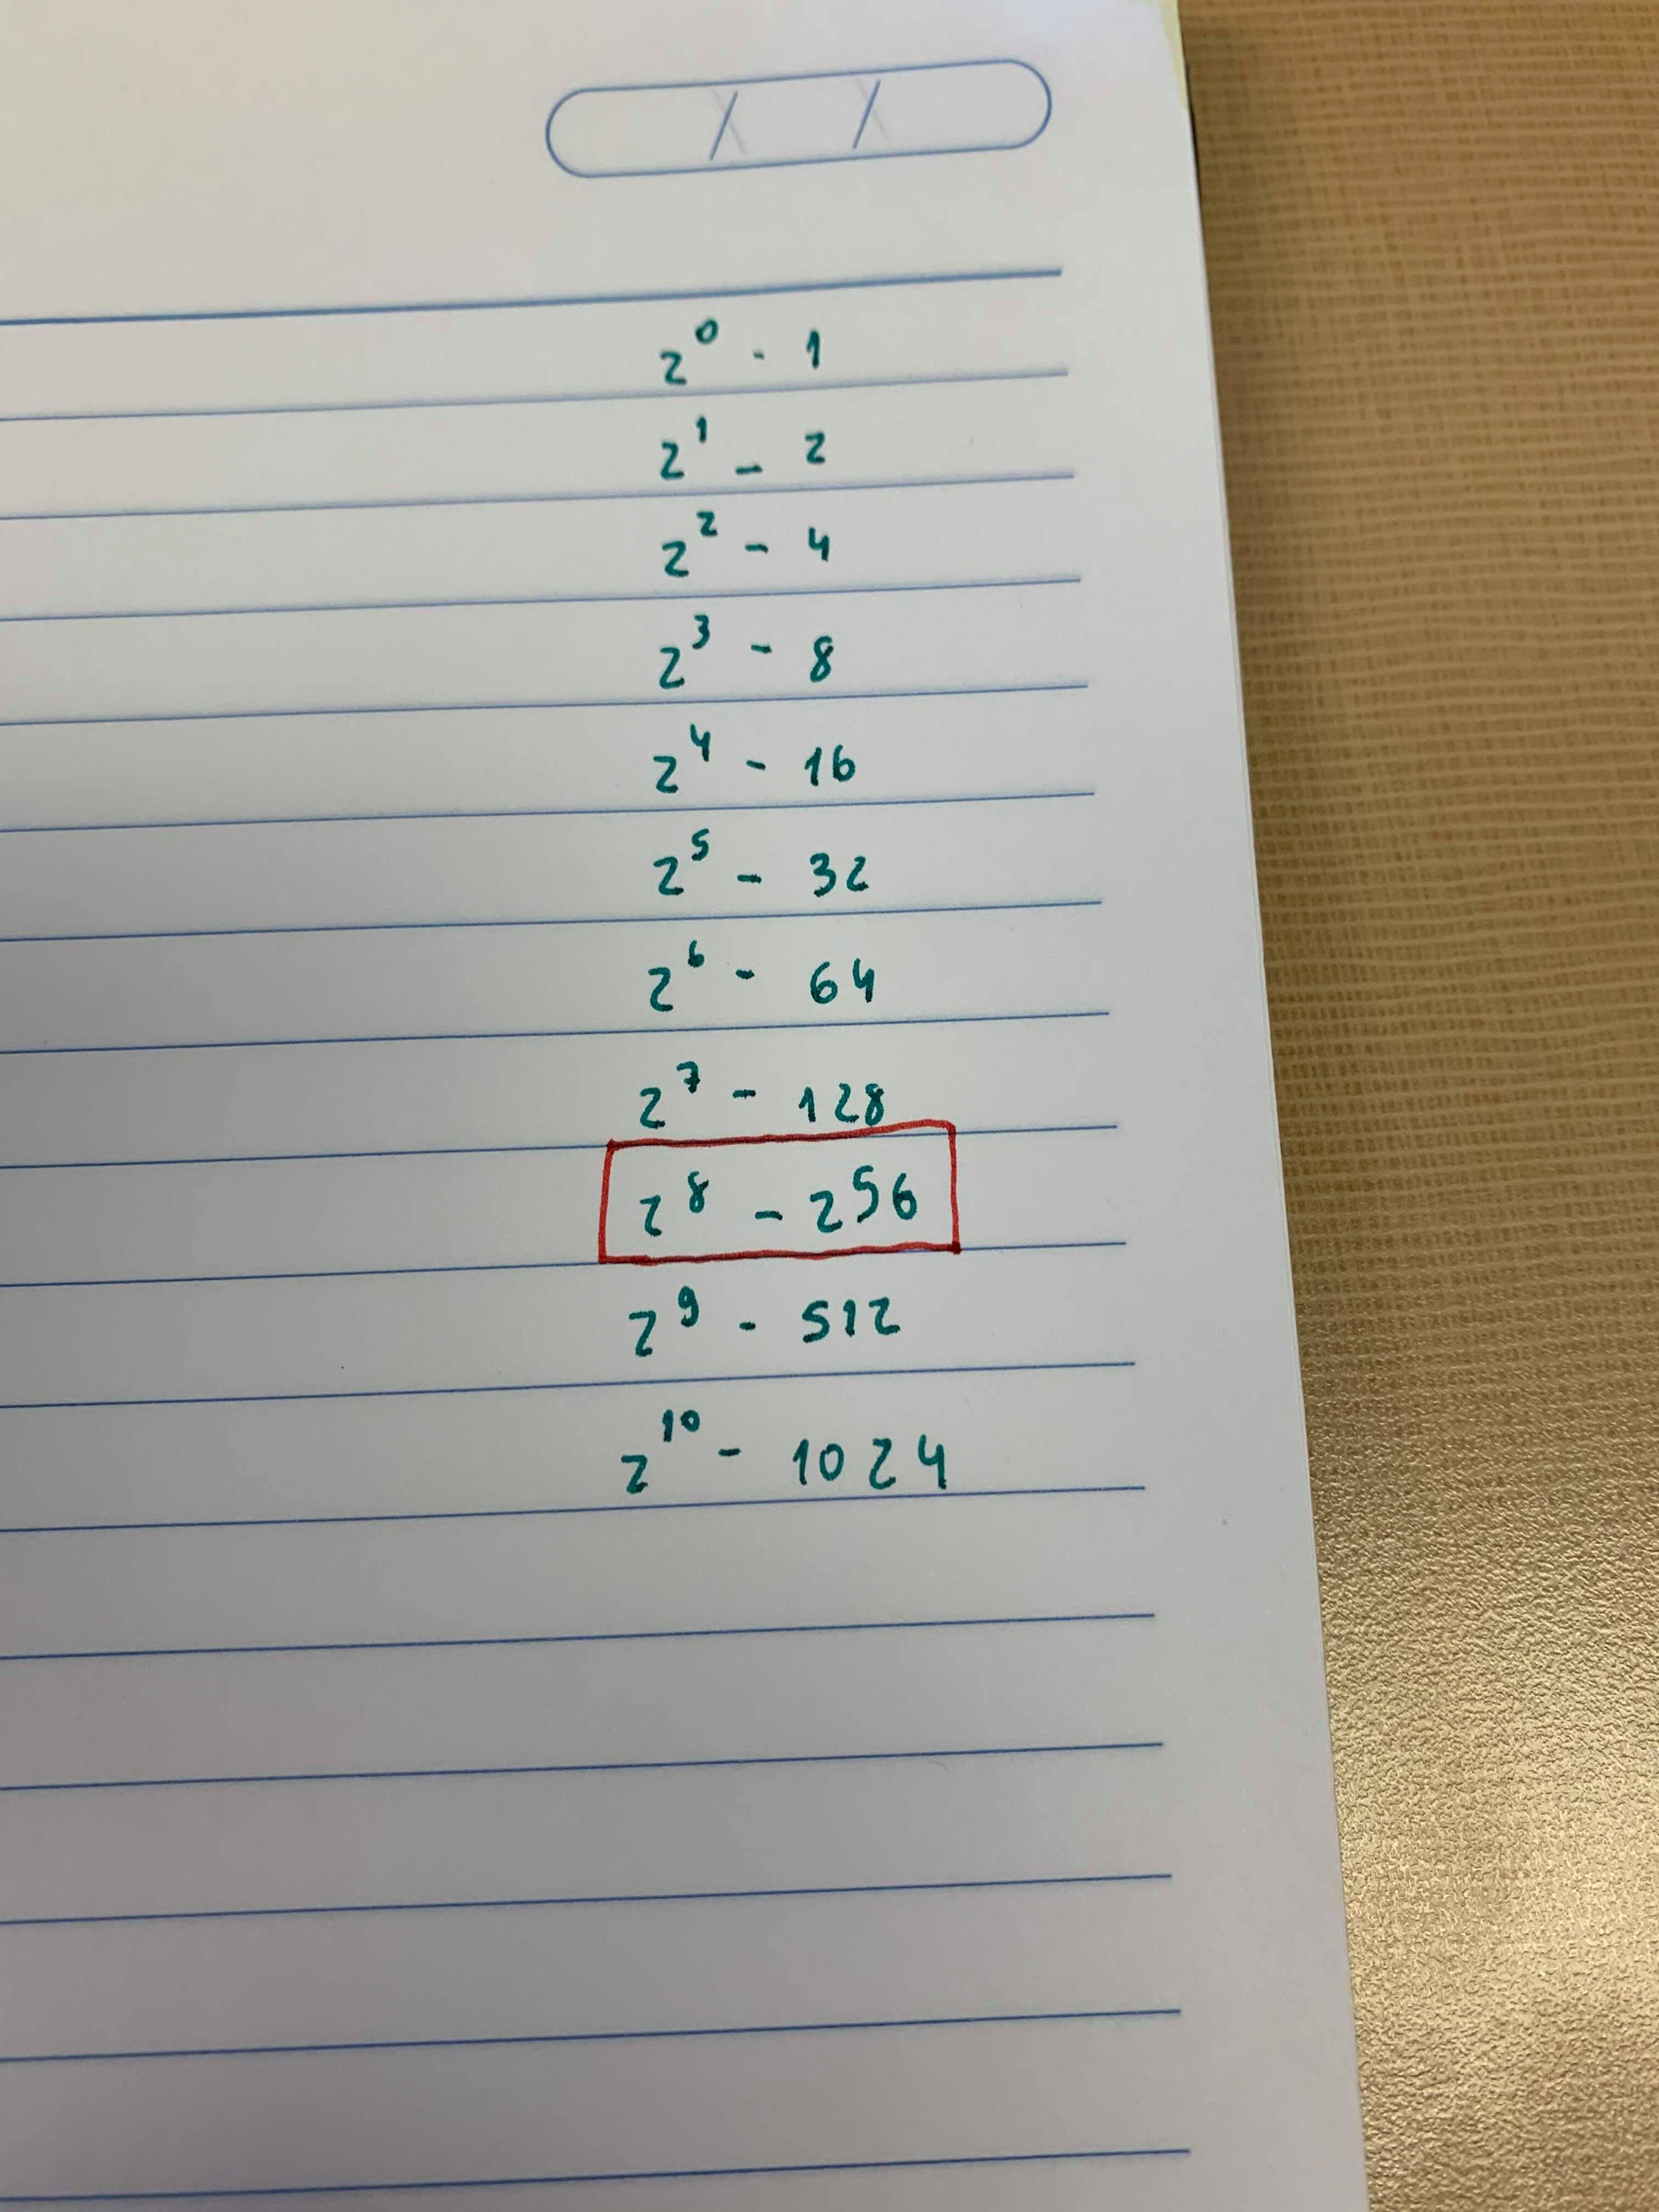 2⁰ - 1
2¹ - 2
2² - 4
2³ - 8
2⁴ - 16
2⁵ - 32
2⁶ - 64
2⁷ - 128
2⁸ - 256
2⁹ - 512
2¹⁰ - 1024